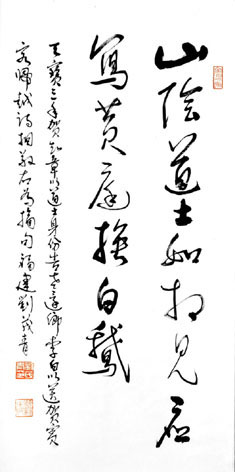 山陰道士如相見應
寫黃庭換白鵝
天寶三年賀知章以道士身份告老還鄉李白以送賀賓
客歸越詩相敬右為摘句福建劉成章